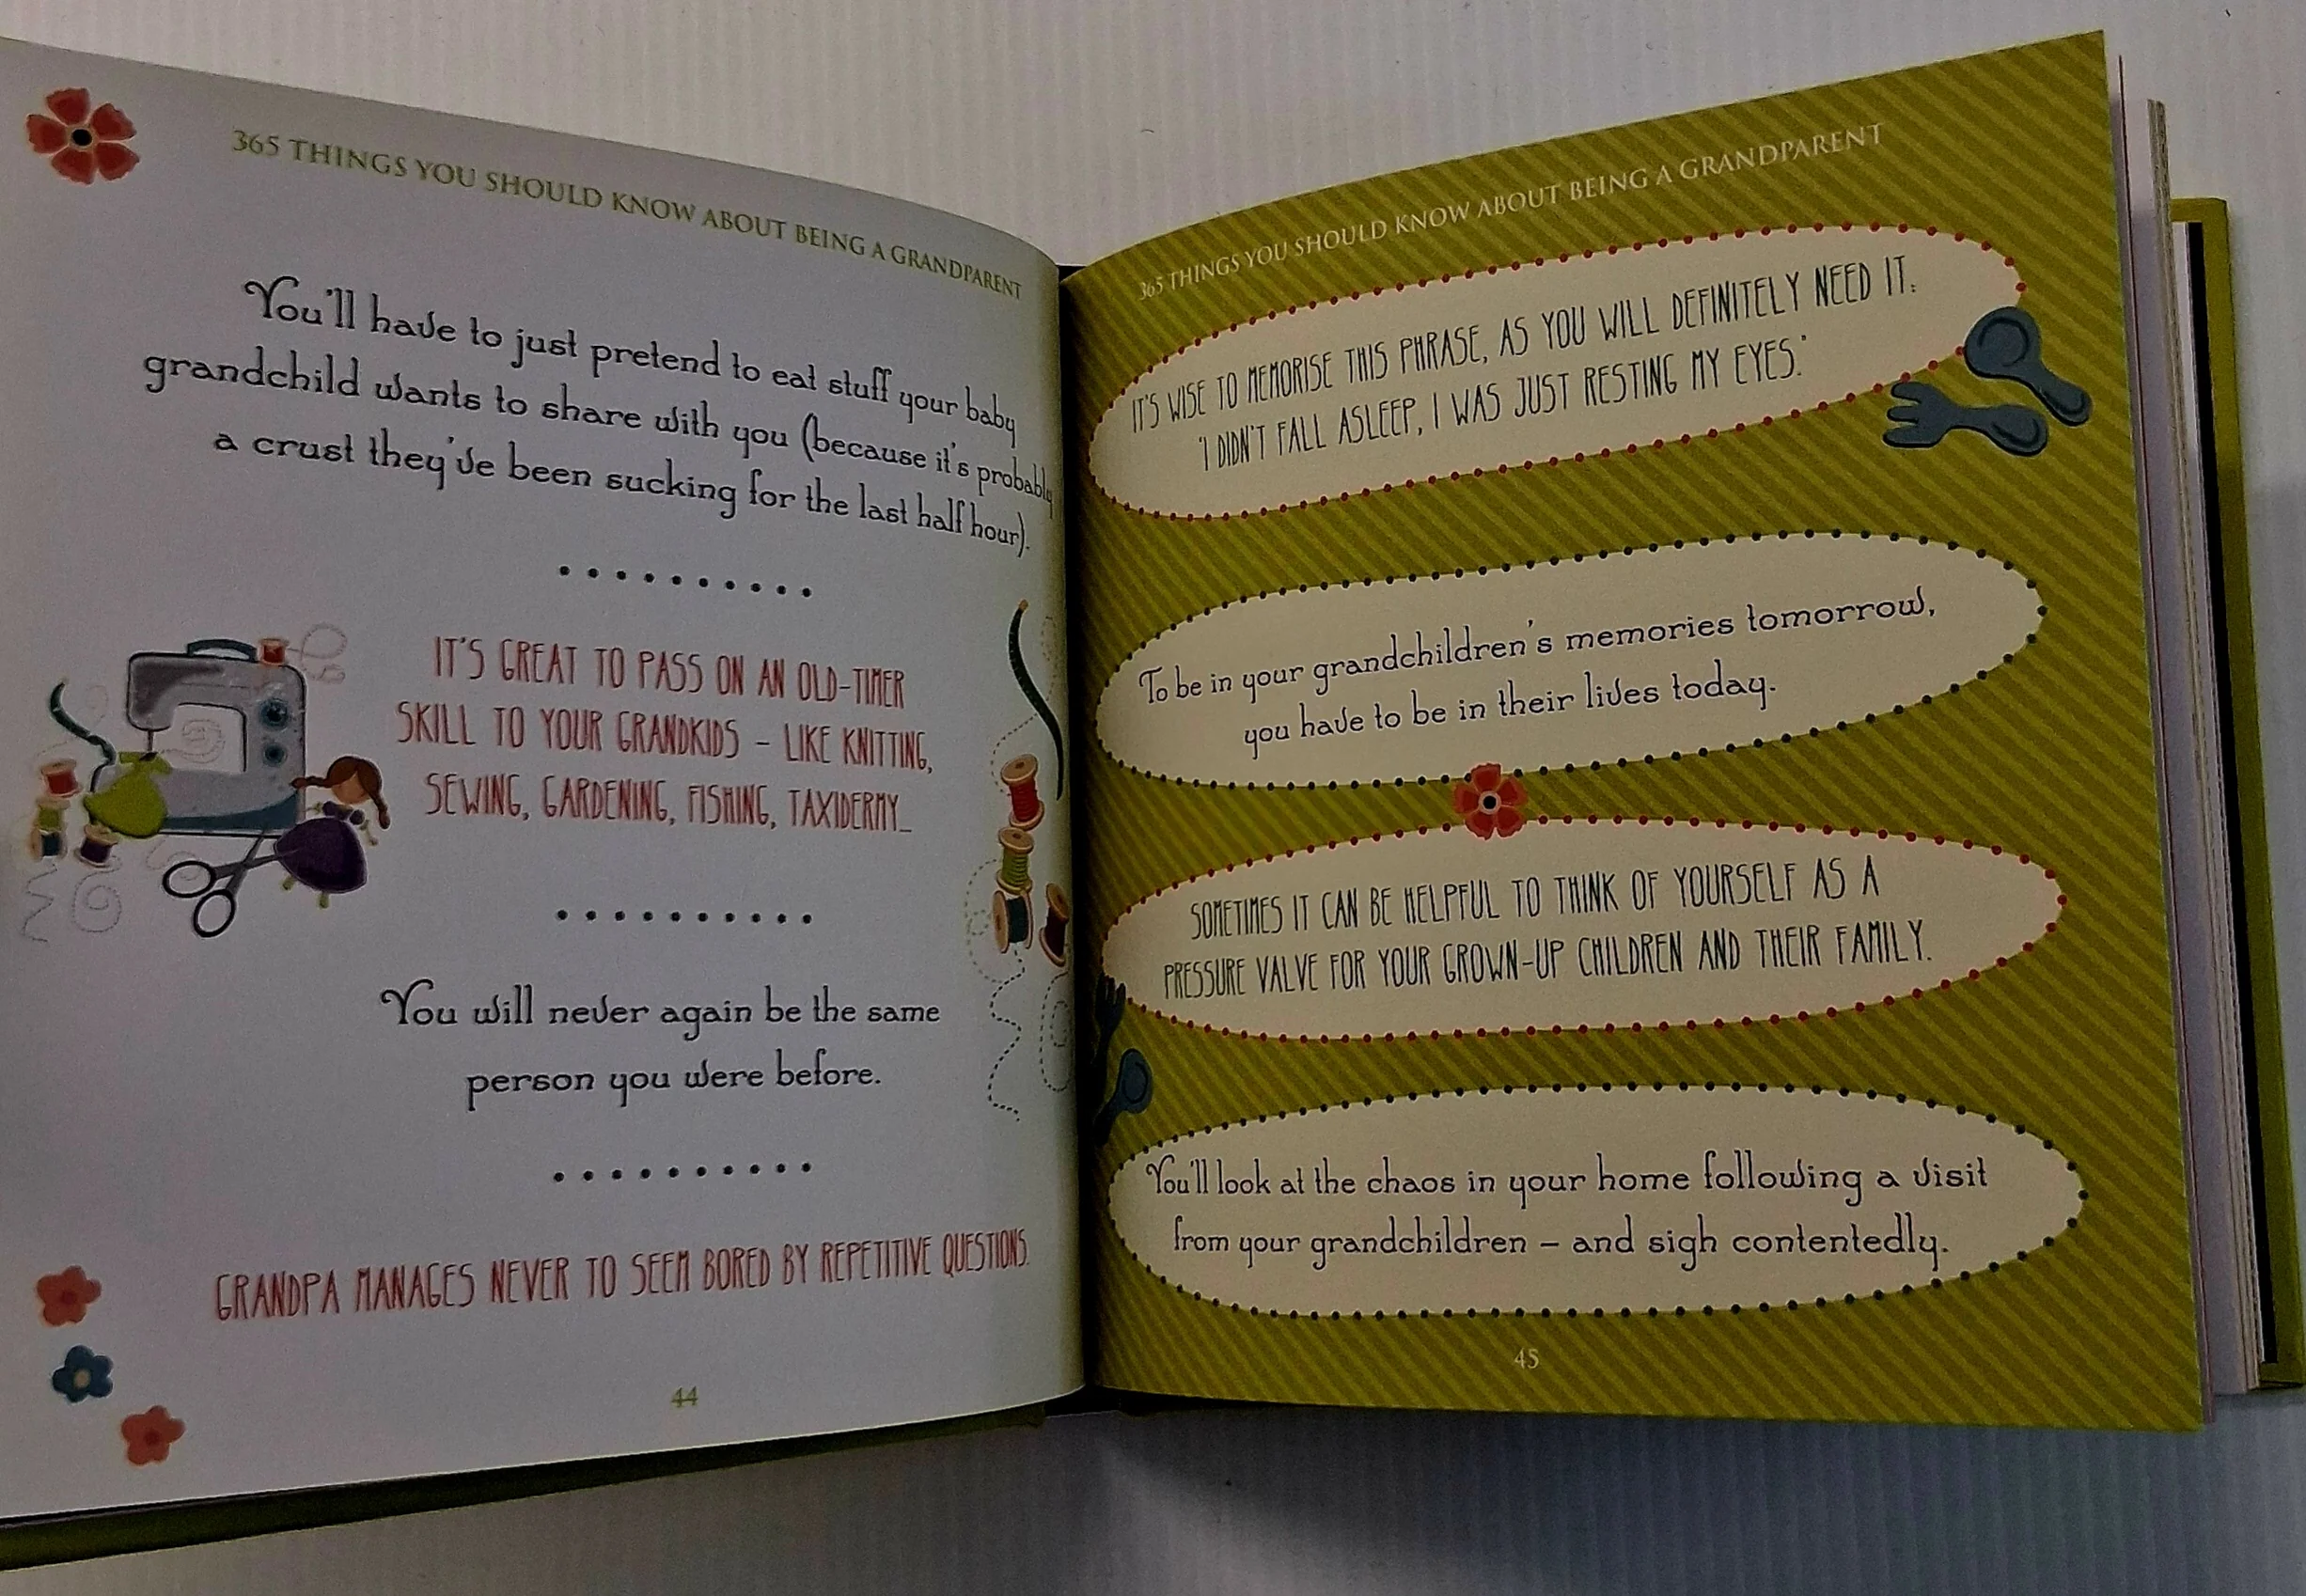 365 THINGS YOU SHOULD KNOW ABOUT BEING A GRANDPARENT
You'll have to just pretend to eat stuff your baby
grandchild wants to share with you (because it's probably
a crust they've been sucking for the last half hour).
IT'S GREAT TO PASS ON AN OLD-TIMER
SKILL TO YOUR GRANDKIDS – LIKE KNITTING,
SEWING, GARDENING, FISHING, TAXIDERMY...
You will never again be the same
person you were before.
GRANDPA MANAGES NEVER TO SEEM BORED BY REPETITIVE QUESTIONS.
44
365 THINGS YOU SHOULD KNOW ABOUT BEING A GRANDPARENT
IT'S WISE TO MEMORISE THIS PHRASE, AS YOU WILL DEFINITELY NEED IT:
'I DIDN'T FALL ASLEEP, I WAS JUST RESTING MY EYES.'
To be in your grandchildren's memories tomorrow,
you have to be in their lives today.
SOMETIMES IT CAN BE HELPFUL TO THINK OF YOURSELF AS A
PRESSURE VALVE FOR YOUR GROWN-UP CHILDREN AND THEIR FAMILY.
You'll look at the chaos in your home following a visit
from your grandchildren – and sigh contentedly.
45